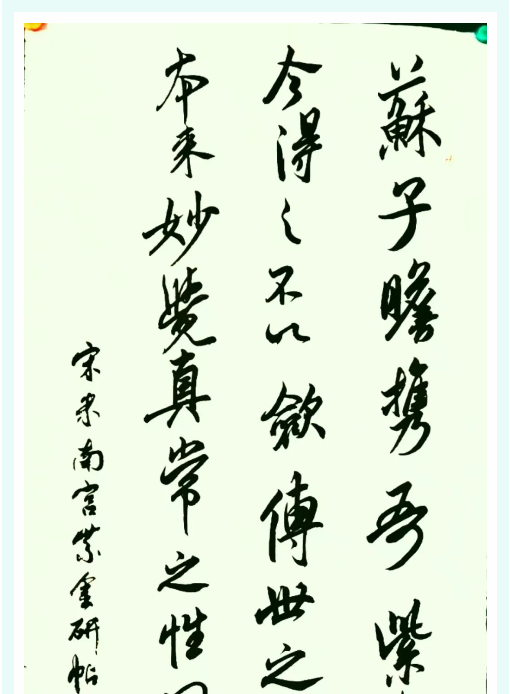 蘇子瞻携吾紫
今得之不以歛傳世之
本来妙覺真常之性
宋米南宫紫金研帖